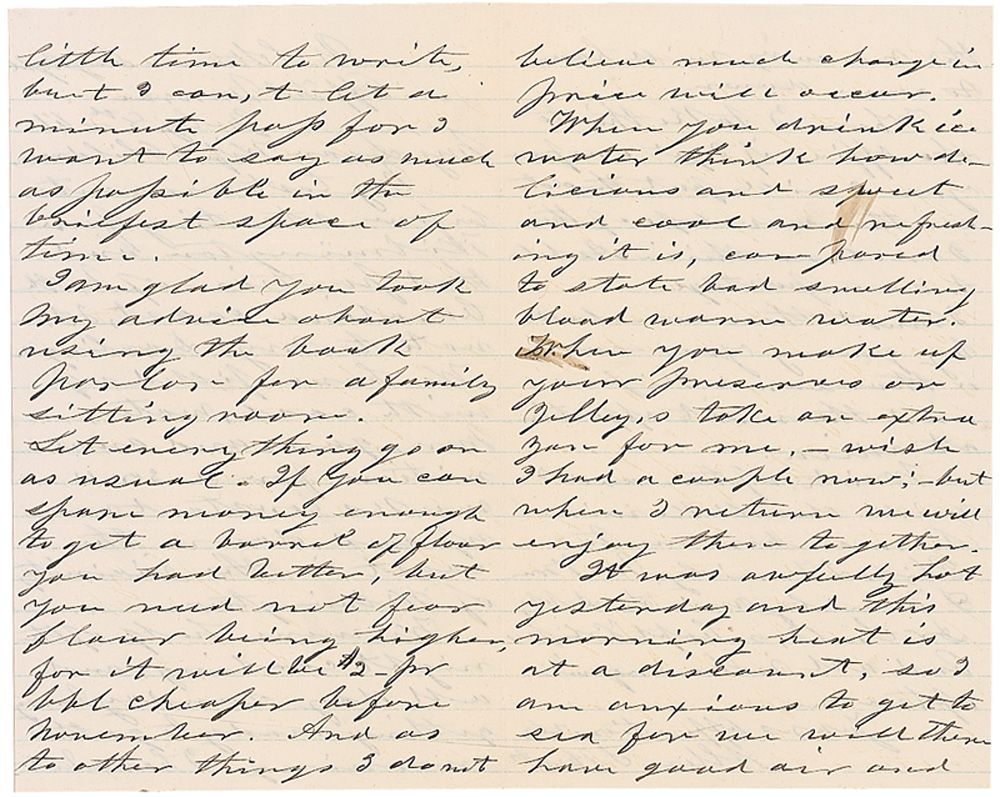 little time to write,
but I can,t let a
minute pass for I
want to say as much
as possible in the
briefest space of
time.
I am glad you took
my advice about
using the back
Parlor for a family
sitting room.
Let everything go on
as usual. If you can
spare money enough
to get a barrel of flour
you had better, but
you need not fear
flour being higher,
for it will be $2 - pr
bbl cheaper before
November. And as
to other things I do not
believe much change in
price will occur.
When you drink ice
water think how de-
licious and sweet
and cool and refresh-
ing it is, compared
to stale bad smelling
blood warm water.
When you make up
your preserves or
Jelley,s take an extra
Jar for me, - wish
I had a couple now; - but
when I return we will
enjoy them together.
It was awfully hot
yesterday and this
morning heat is
at a discount, so I
am anxious to get to
sea for we will there
have good air and